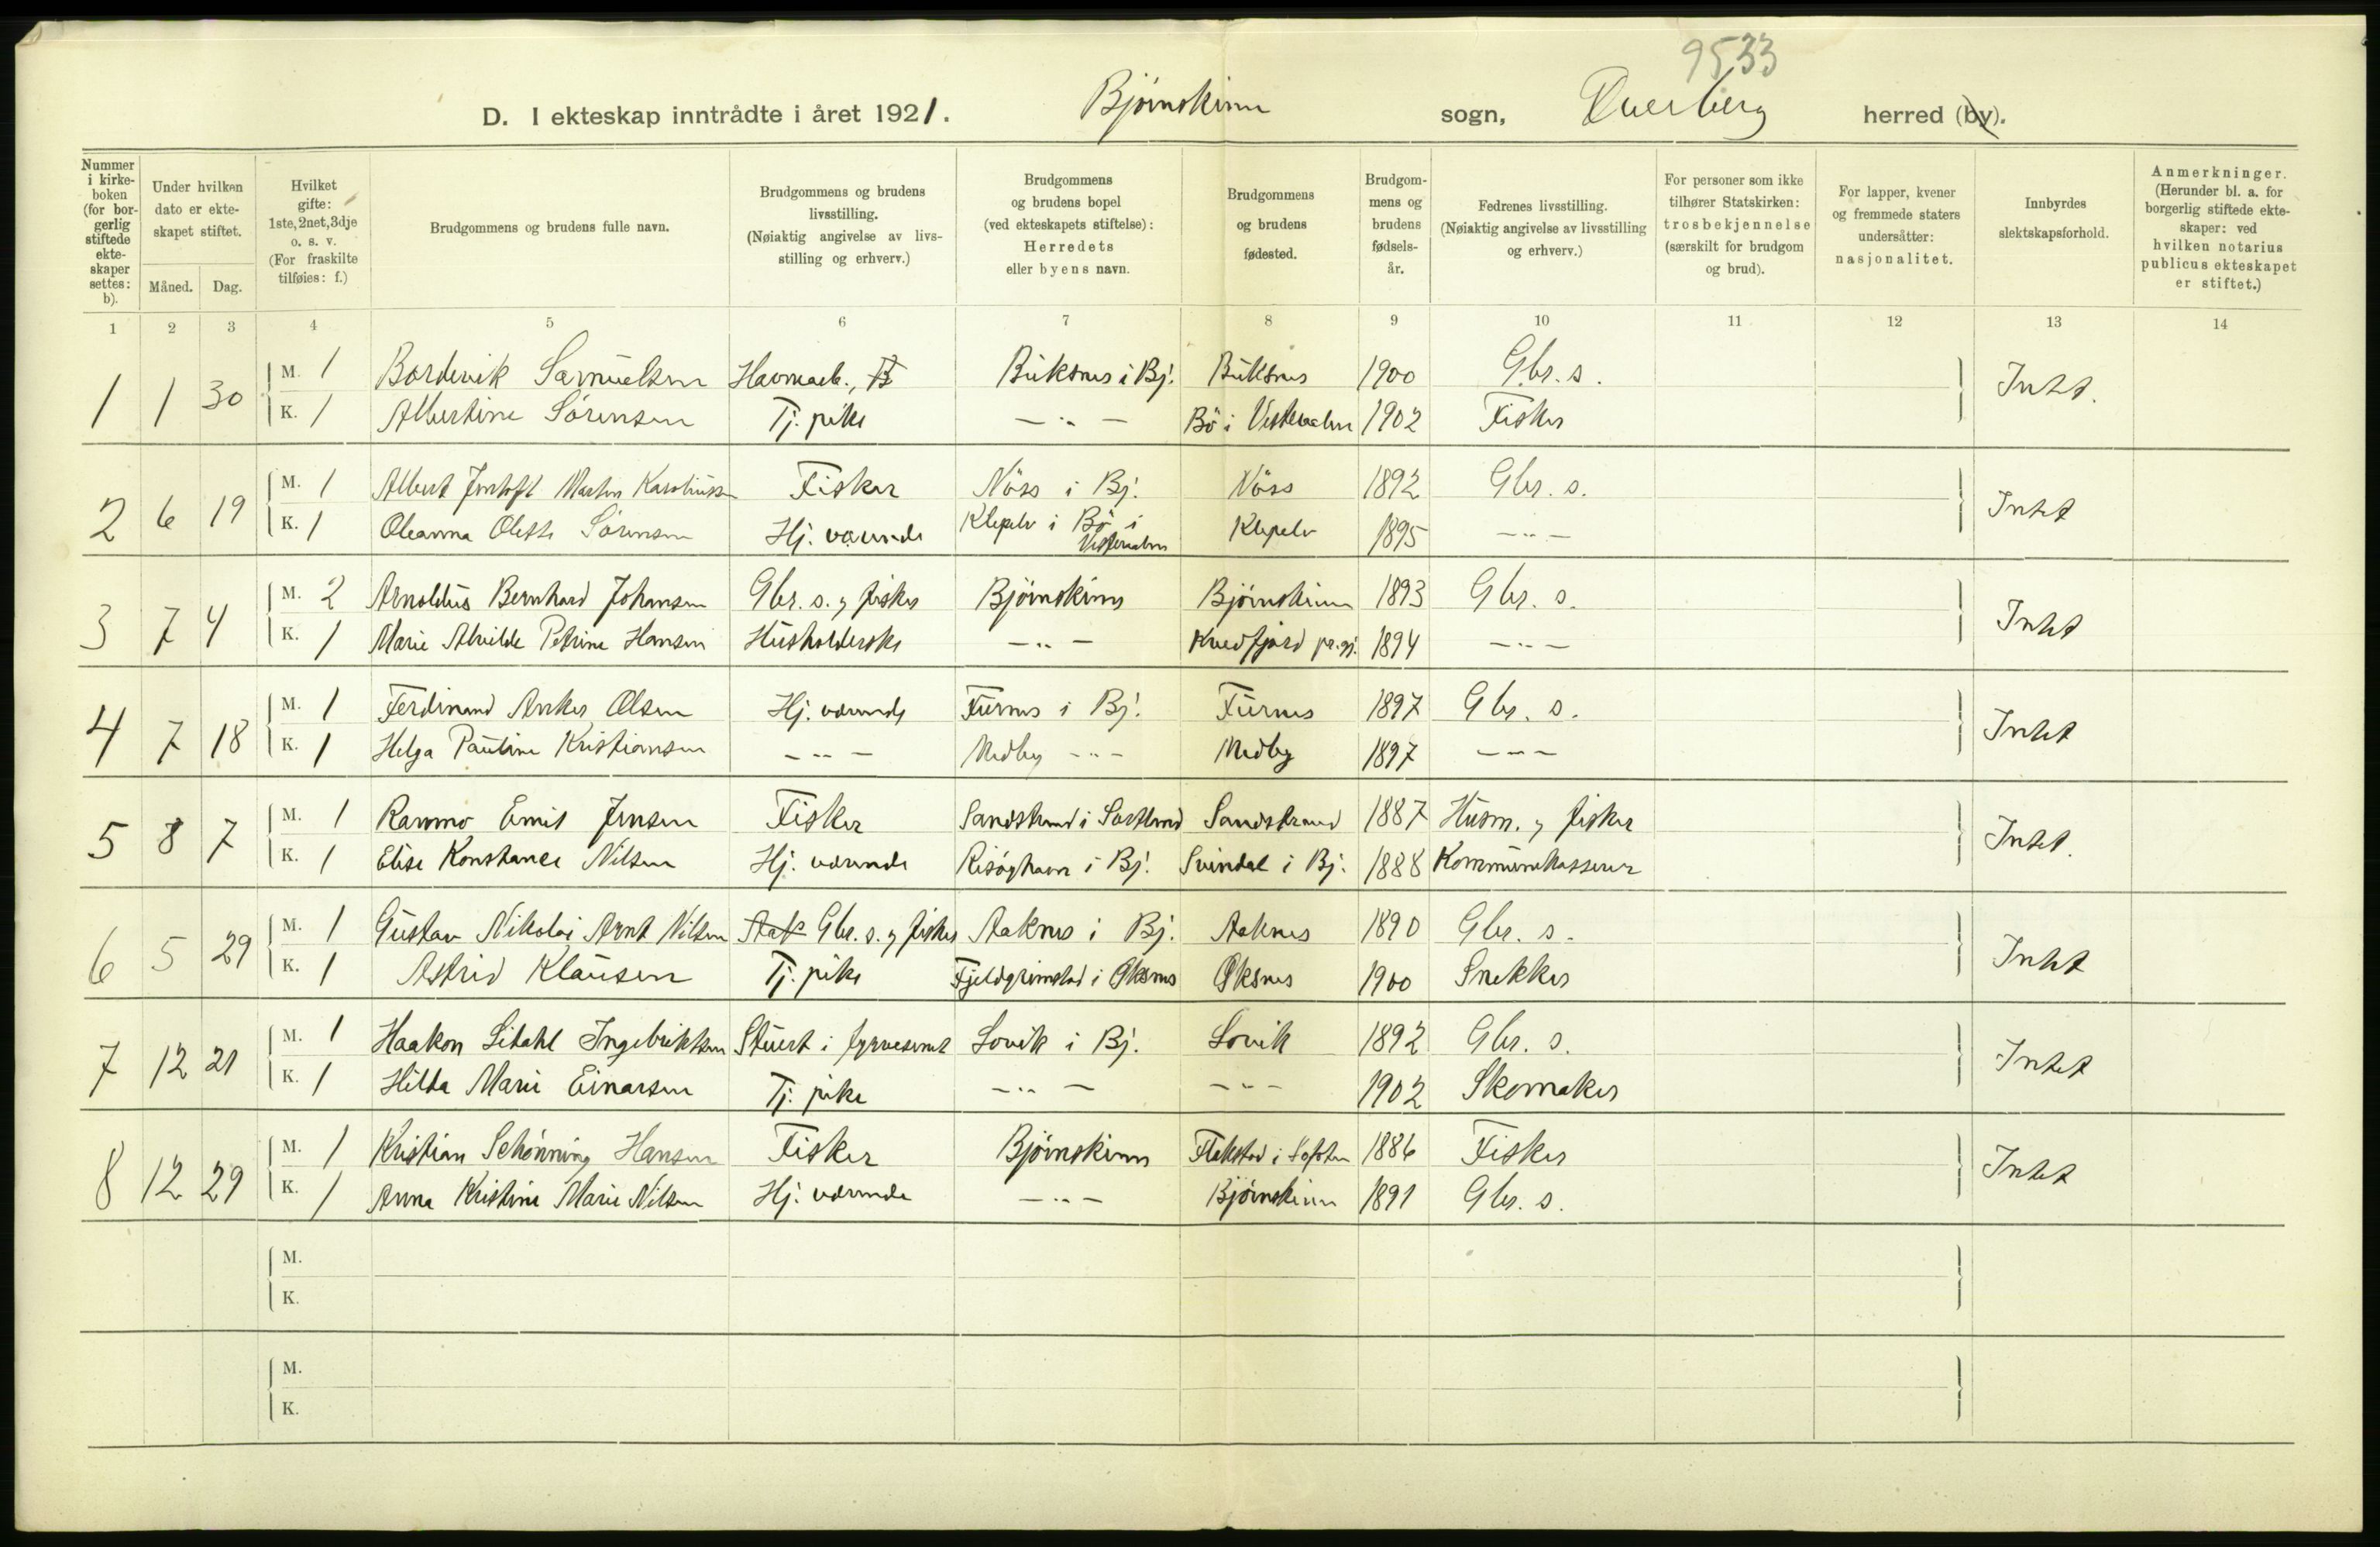 9533
D. I ekteskap inntrådte i året 1921. Bjørnskinn sogn, Dverberg herred (by).
Nummer i kirkeboken (for borgerlig stiftede ekteskaper settes: b).
Under hvilken dato er ekteskapet stiftet.
Måned. Dag.
Hvilket gifte: 1ste, 2net, 3dje o. s. v. (For fraskilte tilføies: f.)
Brudgommens og brudens fulle navn.
Brudgommens og brudens livsstilling. (Nøiaktig angivelse av livsstilling og erhverv.)
Brudgommens og brudens bopel (ved ekteskapets stiftelse): Herredets eller byens navn.
Brudgommens og brudens fødested.
Brudgommens og brudens fødselsår.
Fedrenes livsstilling. (Nøiaktig angivelse av livsstilling og erhverv.)
For personer som ikke tilhører Statskirken: trosbekjennelse (særskilt for brudgom og brud).
For lapper, kvener og fremmede staters undersåtter: nasjonalitet.
Innbyrdes slektskapsforhold.
Anmerkninger. (Herunder bl. a. for borgerlig stiftede ekteskaper: ved hvilken notarius publicus ekteskapet er stiftet.)
1 2 3 4 5 6 7 8 9 10 11 12 13 14
1 1 30 M. 1 Bordevik Samuelsen Havnearb., Buksnes i Bj. Buksnes 1900 Gbr. s. Intet.
K. 1 Albertine Sörensen Tj. pike — " — Bö i Vesteraalen 1902 Fisker
2 6 19 M. 1 Albert Martin Karoliussen Fisker Nöss i Bj. Nöss 1892 Gbr. s. Intet
K. 1 Oleanna Olette Sörensen Hj. værende Klepelv i Bö i Vesteraalen Klepelv 1895 — " —
3 7 4 M. 2 Arnoldus Bernhard Johansen Gbr. s. og fisker Bjørnskinn Bjørnskinn 1893 Gbr. s. Intet
K. 1 Marie Alvilde Petrine Hansen Husholderske — " — Kvedfjord pr.gj. 1894 — " —
4 7 18 M. 1 Ferdinand Anker Olsen Hj. værende Furnes i Bj. Furnes 1897 Gbr. s. Intet
K. 1 Helga Pauline Kristiansen — " — Medby — " — Medby 1897 — " —
5 8 7 M. 1 Ranmo Emil Jensen Fisker Sandstrand i Sortland Sandstrand 1887 Husm. og fisker Intet.
K. 1 Elise Konstance Nilsen Hj. værende Risöyhavn i Bj. Svindal i Bj. 1888 Kommunekasserer
6 5 29 M. 1 Gustav Nikolai Arnt Nilsen Gbr. s. og fisker Aaknes i Bj. Aaknes 1890 Gbr. s. Intet
K. 1 Astrid Klausen Tj. pike Fjeldgrimstad i Øksnes Øksnes 1900 Snekker
7 12 21 M. 1 Haakon Ingebriktsen Stuert i fyrvesenet Lovik i Bj. Lovik 1892 Gbr. s. Intet
K. 1 Hilda Marie Einarsen Tj. pike — " — — " — 1902 Skomaker
8 12 29 M. 1 Kristian Schönning Hansen Fisker Bjørnskinn Flakstad i Lofoten 1886 Fisker Intet
K. 1 Anna Kristine Marie Nilsen Hj. værende — " — Bjørnskinn 1891 Gbr. s.
M.
K.
M.
K.